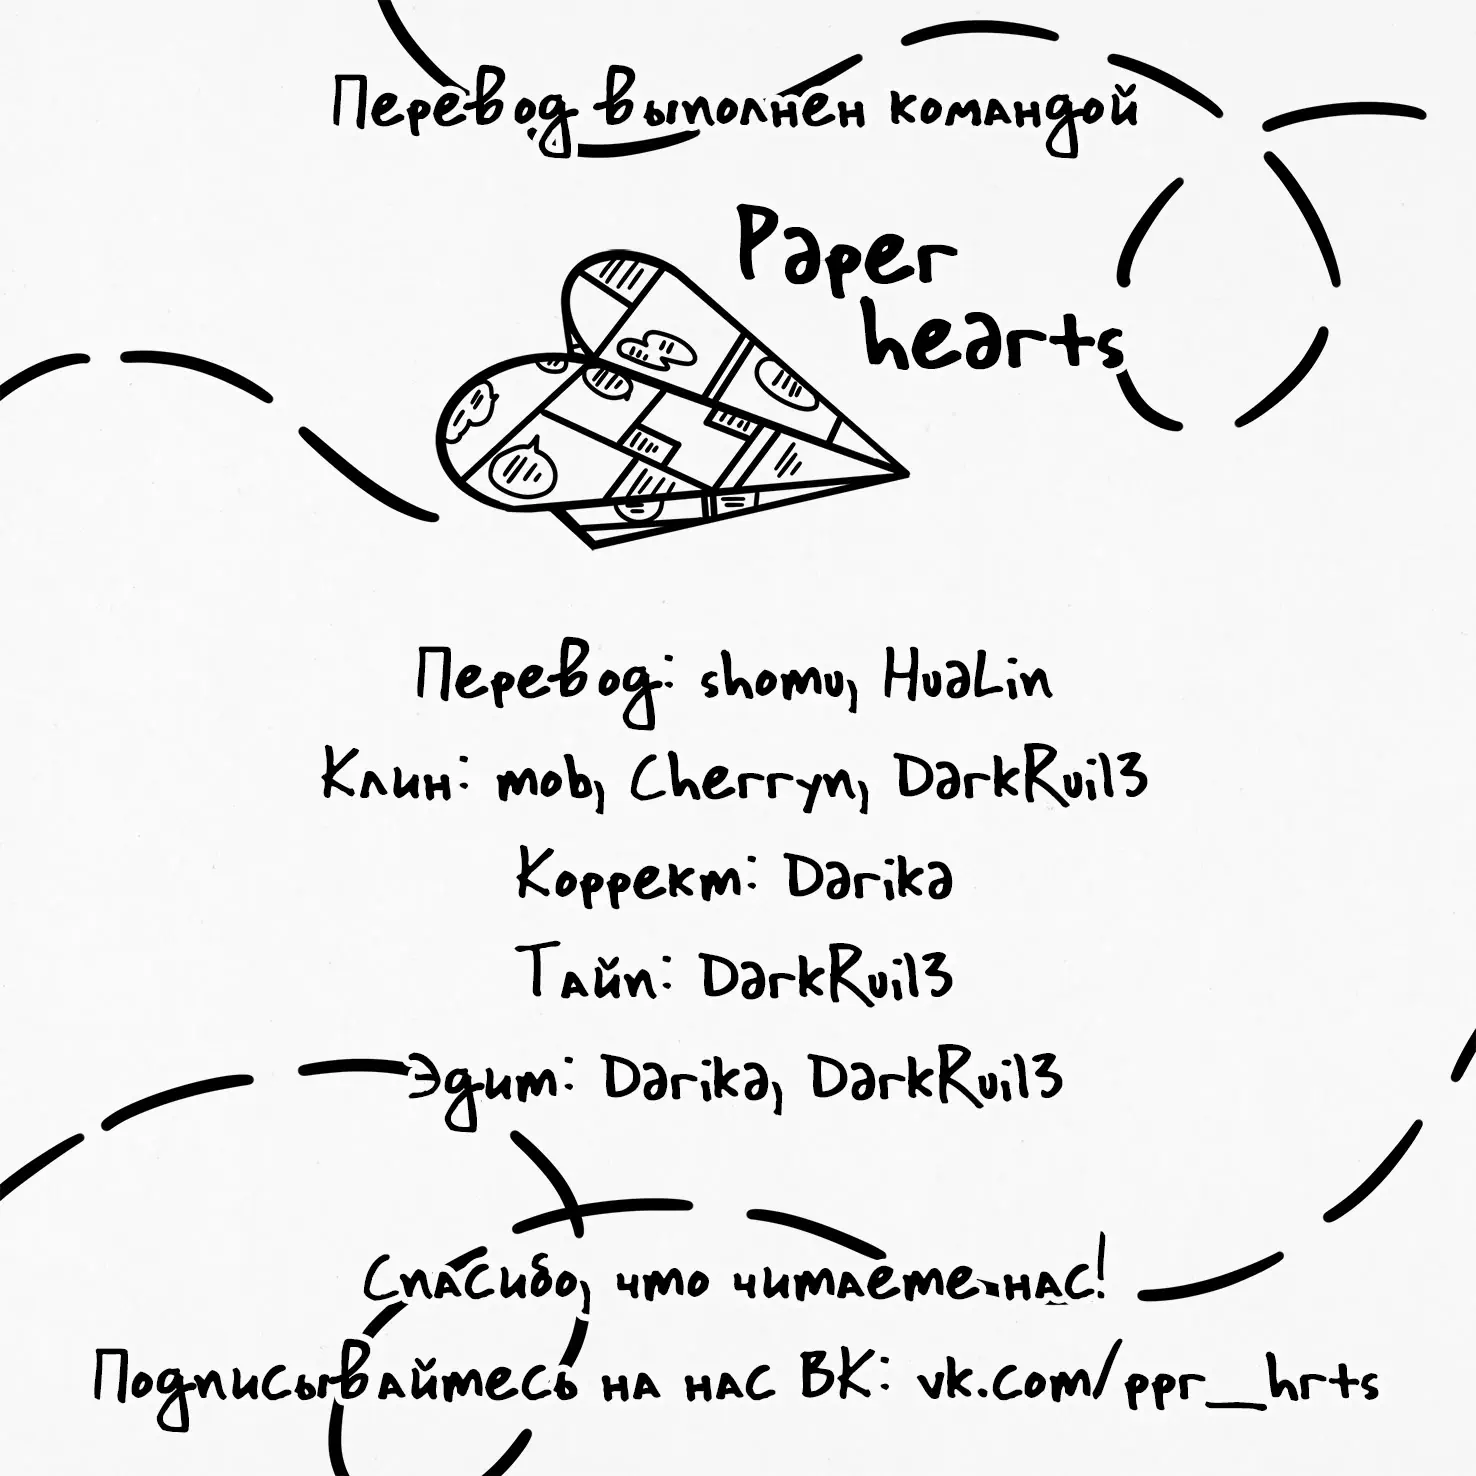 Перевод выполнен командой
Paper
hearts
Перевод: shomu, HuaLin
Клин: mob, Cherryn, DarkRui13
Коррект: Darika
Тайп: DarkRui13
Эдит: Darika, DarkRui13
Спасибо, что читаете нас!
Подписывайтесь на нас ВК: vk.com/ppr__hrts